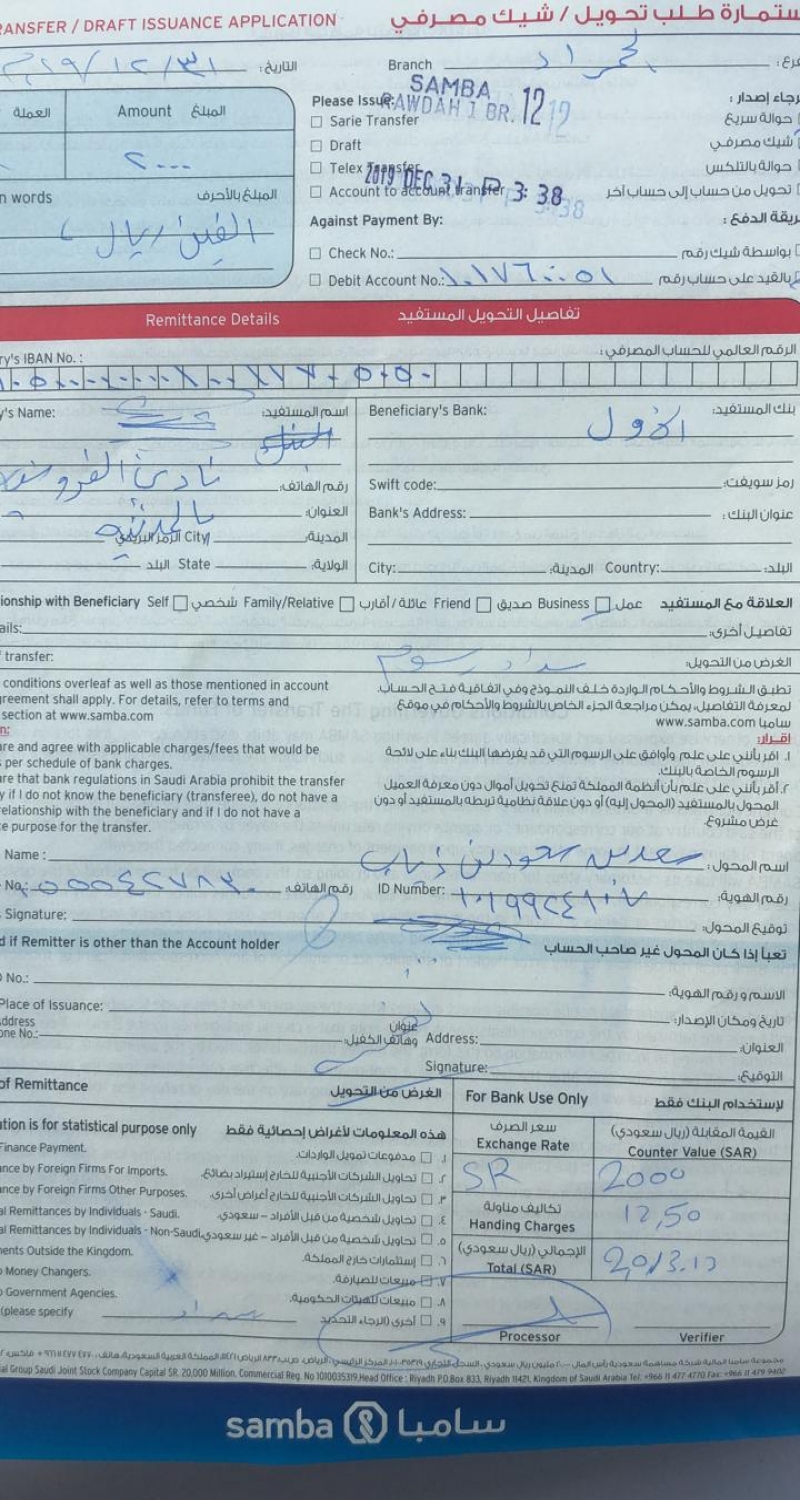 RANSFER / DRAFT ISSUANCE APPLICATION ستمارة طلب تحويل / شيك مصرفي
التاريخ: ٢٠١٩/١٢/٣١ Branch
العملة Amount المبلغ
٢٠٠٠
n words المبلغ بالأحرف
ألفين ريال
Please Issue: رجاء إصدار :
SAMBA
RAWDAH 1 BR. 12
Sarie Transfer حوالة سريع
Draft شيك مصرفي
Telex Transfer حوالة بالتلكس
2019 DEC 31 P 3: 38
Account to account transfer تحويل من حساب إلى حساب آخر
Against Payment By: ريقة الدفع :
Check No.: بواسطة شيك رقم
Debit Account No.: بالقيد على حساب رقم
Remittance Details تفاصيل التحويل المستفيد
ry's IBAN No. : الرقم العالمي للحساب المصرفي :
y's Name: اسم المستفيد: Beneficiary's Bank: بنك المستفيد:
الأول
رقم الهاتف: Swift code: رمز سويفت:
نادي الفروسية
العنوان: Bank's Address: عنوان البنك :
City المدينة:
البلد State الولاية: City: المدينة: Country: البلد:
ionship with Beneficiary Self شخصي Family/Relative عائلة / أقارب Friend صديق Business عمل العلاقة مع المستفيد
ails: تفاصيل أخرى:
transfer: سداد رسوم الغرض من التحويل:
conditions overleaf as well as those mentioned in account
reement shall apply. For details, refer to terms and
section at www.samba.com
تطبق الشروط والأحكام الواردة خلف النموذج وفي اتفاقية فتح الحساب.
لمعرفة التفاصيل، يمكن مراجعة الجزء الخاص بالشروط والأحكام في موقع
سامبا www.samba.com
n: إقرار:
re and agree with applicable charges/fees that would be
s per schedule of bank charges.
re that bank regulations in Saudi Arabia prohibit the transfer
y if I do not know the beneficiary (transferee), do not have a
relationship with the beneficiary and if I do not have a
e purpose for the transfer.
١. اقر بأنني على علم وأوافق على الرسوم التي قد يفرضها البنك بناء على لائحة
الرسوم الخاصة بالبنك.
٢. أقر بأنني على علم بأن أنظمة المملكة تمنع تحويل أموال دون معرفة العميل
المحول بالمستفيد (المحول إليه) أو دون علاقة نظامية تربطه بالمستفيد أو دون
غرض مشروع.
Name : اسم المحول:
No.: رقم الهاتف: ID Number: رقم الهوية:
Signature: توقيع المحول:
d if Remitter is other than the Account holder تعبأ إذا كان المحول غير صاحب الحساب
No.: الاسم و رقم الهوية:
Place of Issuance: تاريخ ومكان الإصدار:
ddress
one No.: عنوان
وهاتف الكفيل: Address: العنوان:
Signature: التوقيع:
of Remittance الغرض من التحويل For Bank Use Only لإستخدام البنك فقط
tion is for statistical purpose only هذه المعلومات لأغراض إحصائية فقط
سعر الصرف
Exchange Rate
القيمة المقابلة (ريال سعودي)
Counter Value (SAR)
SR 2000
Finance Payment. ١. مدفوعات تمويل الواردات.
nce by Foreign Firms For Imports. ٢. تحاويل الشركات الأجنبية للخارج إستيراد بضائع.
nce by Foreign Firms Other Purposes. ٣. تحاويل الشركات الأجنبية للخارج أغراض أخرى.
al Remittances by Individuals - Saudi. ٤. تحاويل شخصية من قبل الأفراد – سعودي.
al Remittances by Individuals - Non-Saudi ٥. تحاويل شخصية من قبل الأفراد – غير سعودي.
ents Outside the Kingdom. ٦. إستثمارات خارج المملكة.
o Money Changers. ٧. مبيعات للصيارفة.
o Government Agencies. ٨. مبيعات للهيئات الحكومية.
(please specify سداد ٩. أخرى (الرجاء التحديد
تكاليف مناولة
Handing Charges 12,50
الإجمالي (ريال سعودي)
Total (SAR)
Processor Verifier
al Group Saudi Joint Stock Company Capital SR. 20,000 Million. Commercial Reg. No 1010035319,Head Office : Riyadh P.O.Box 833, Riyadh 11421, Kingdom of Saudi Arabia Tel: +966 11 477 4770 Fax: +966 11 479 9402
samba سامبا